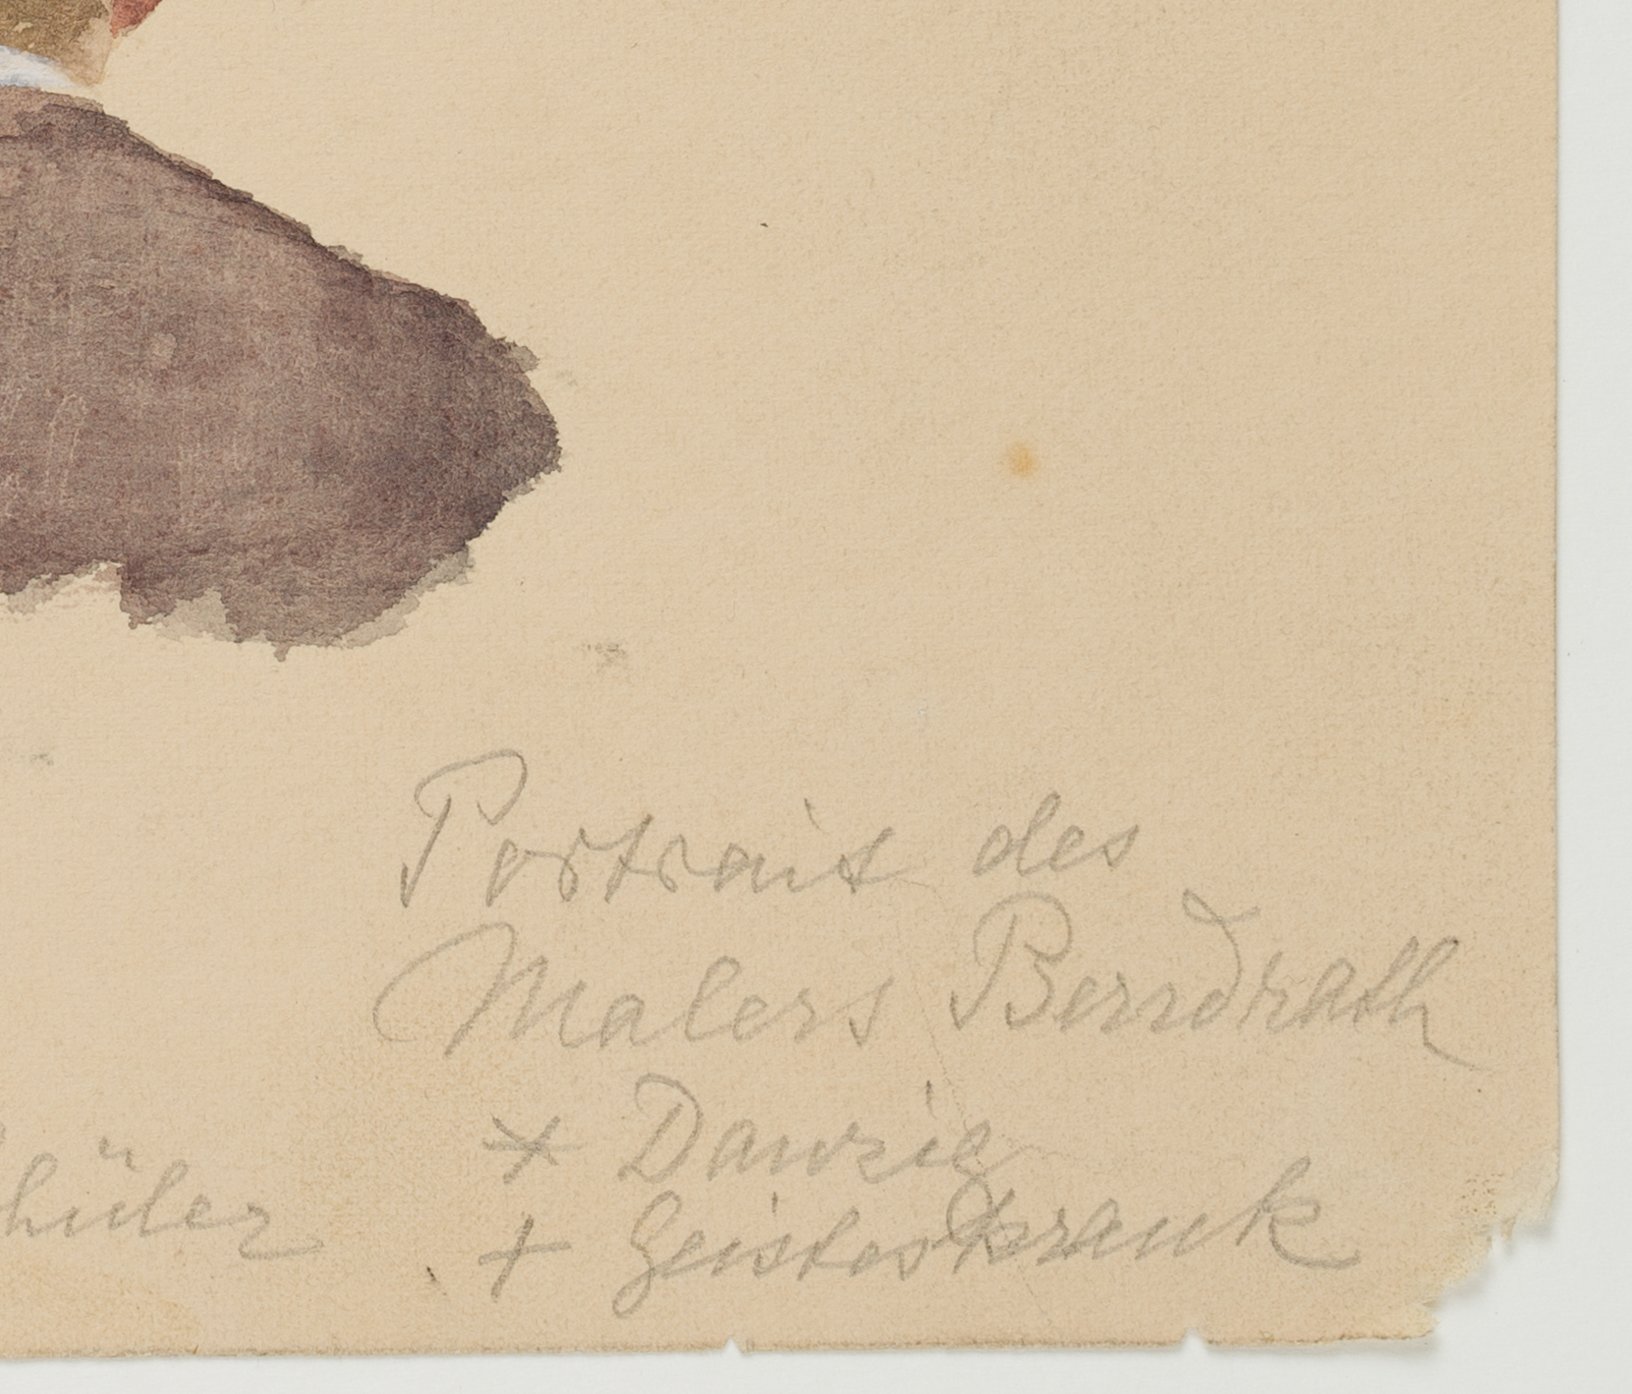 Portrait des
Malers Berndrath
* Danzig
+ Geisteskrank
hüler